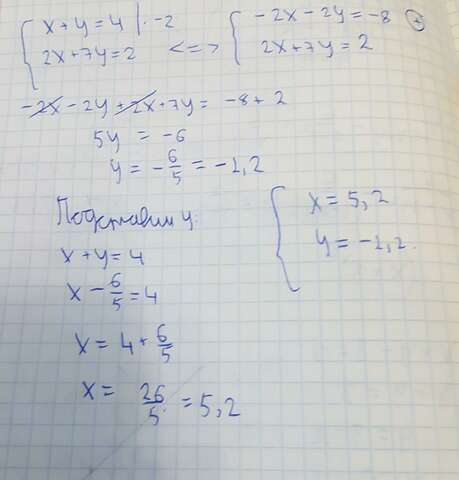 { x + y = 4 | · -2
2x + 7y = 2 <=> { -2x - 2y = -8 (+)
2x + 7y = 2
-2x - 2y + 2x + 7y = -8 + 2
5y = -6
y = - 6/5 = -1,2
Подставим y:
x + y = 4
x - 6/5 = 4
x = 4 + 6/5
x = 26/5 = 5,2
{ x = 5,2
y = -1,2.